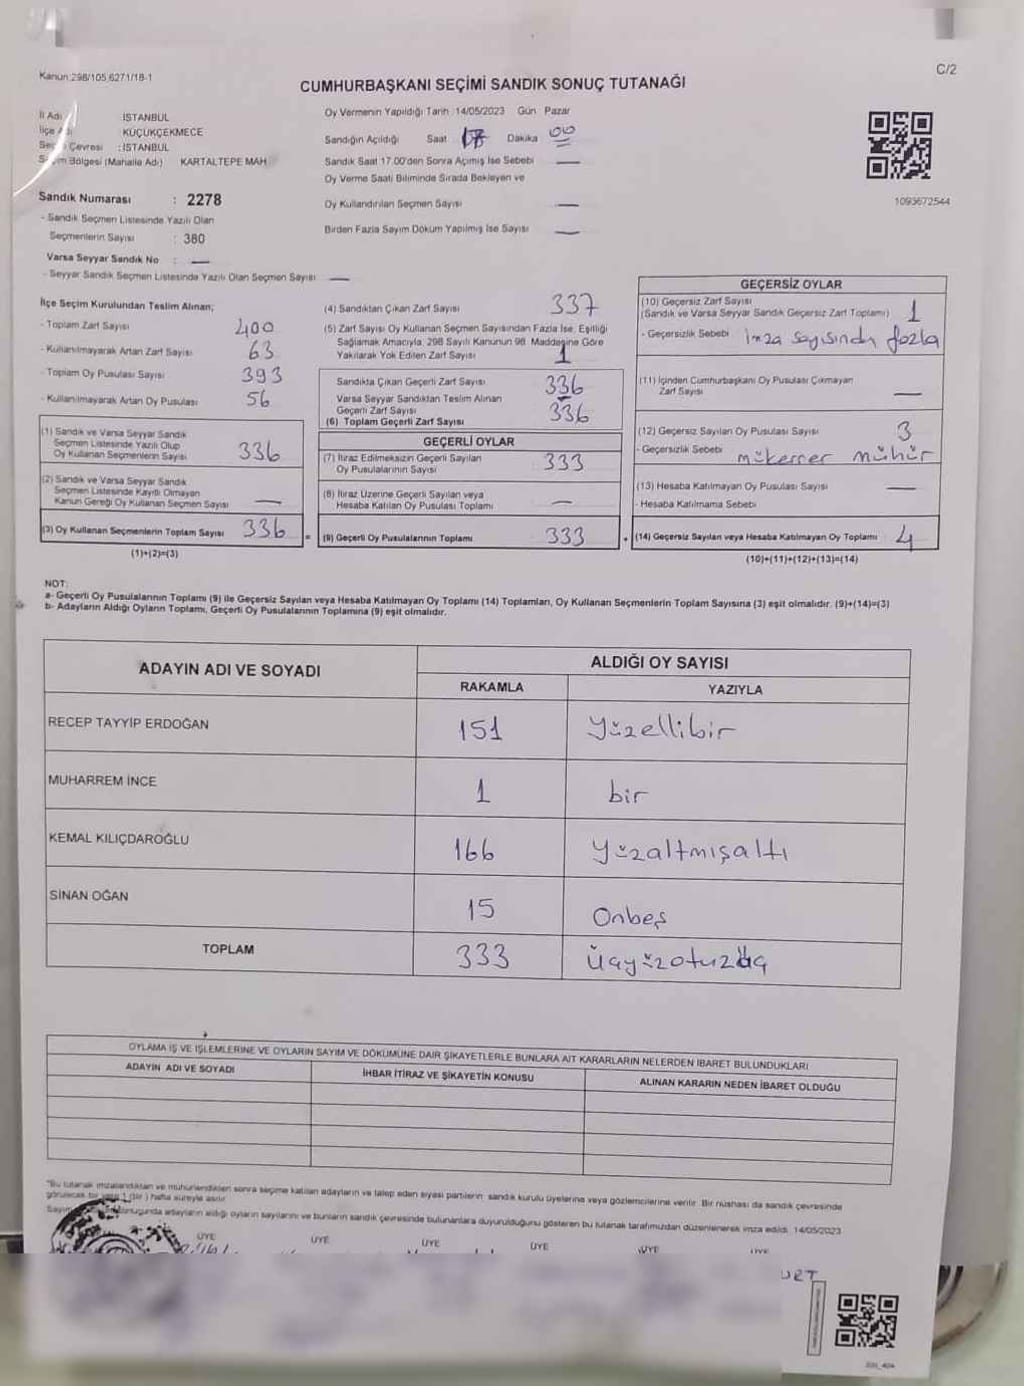 Kanun:298/105,6271/18-1
C/2
CUMHURBAŞKANI SEÇİMİ SANDIK SONUÇ TUTANAĞI
İl Adı İSTANBUL
İlçe Adı KÜÇÜKÇEKMECE
Seçim Çevresi :İSTANBUL
Seçim Bölgesi (Mahalle Adı) KARTALTEPE MAH
Sandık Numarası : 2278
- Sandık Seçmen Listesinde Yazılı Olan
Seçmenlerin Sayısı : 380
Varsa Seyyar Sandık No : —
- Seyyar Sandık Seçmen Listesinde Yazılı Olan Seçmen Sayısı —
Oy Vermenin Yapıldığı Tarih :14/05/2023 Gün Pazar
Sandığın Açıldığı Saat Dakika 00
Sandık Saat 17.00'den Sonra Açımış İse Sebebi —
Oy Verme Saati Bitiminde Sırada Bekleyen ve
Oy Kullandırılan Seçmen Sayısı —
Birden Fazla Sayım Döküm Yapılmış İse Sayısı —
1093672544
İlçe Seçim Kurulundan Teslim Alınan;
- Toplam Zarf Sayısı 400
- Kullanılmayarak Artan Zarf Sayısı 63
- Toplam Oy Pusulası Sayısı 393
- Kullanılmayarak Artan Oy Pusulası 56
(1) Sandık ve Varsa Seyyar Sandık
Seçmen Listesinde Yazılı Olup
Oy Kullanan Seçmenlerin Sayısı 336
(2) Sandık ve Varsa Seyyar Sandık
Seçmen Listesinde Kayıtlı Olmayan
Kanun Gereği Oy Kullanan Seçmen Sayısı —
(3) Oy Kullanan Seçmenlerin Toplam Sayısı 336
(1)+(2)=(3)
(4) Sandıktan Çıkan Zarf Sayısı 337
(5) Zarf Sayısı Oy Kullanan Seçmen Sayısından Fazla İse, Eşitliği
Sağlamak Amacıyla, 298 Sayılı Kanunun 98. Maddesine Göre
Yakılarak Yok Edilen Zarf Sayısı 1
Sandıkta Çıkan Geçerli Zarf Sayısı 336
Varsa Seyyar Sandıktan Teslim Alınan
Geçerli Zarf Sayısı —
(6) Toplam Geçerli Zarf Sayısı 336
GEÇERLİ OYLAR
(7) İtiraz Edilmeksizin Geçerli Sayılan
Oy Pusulalarının Sayısı 333
(8) İtiraz Üzerine Geçerli Sayılan veya
Hesaba Katılan Oy Pusulası Toplamı —
= (9) Geçerli Oy Pusulalarının Toplamı 333
GEÇERSİZ OYLAR
(10) Geçersiz Zarf Sayısı
(Sandık ve Varsa Seyyar Sandık Geçersiz Zarf Toplamı) 1
- Geçersizlik Sebebi imza sayısından fazla
(11) İçinden Cumhurbaşkanı Oy Pusulası Çıkmayan
Zarf Sayısı —
(12) Geçersiz Sayılan Oy Pusulası Sayısı 3
- Geçersizlik Sebebi mükerrer mühür
(13) Hesaba Katılmayan Oy Pusulası Sayısı —
- Hesaba Katılmama Sebebi
+ (14) Geçersiz Sayılan veya Hesaba Katılmayan Oy Toplamı 4
(10)+(11)+(12)+(13)=(14)
NOT:
a- Geçerli Oy Pusulalarının Toplamı (9) ile Geçersiz Sayılan veya Hesaba Katılmayan Oy Toplamı (14) Toplamları, Oy Kullanan Seçmenlerin Toplam Sayısına (3) eşit olmalıdır. (9)+(14)=(3)
b- Adayların Aldığı Oyların Toplamı, Geçerli Oy Pusulalarının Toplamına (9) eşit olmalıdır.
ADAYIN ADI VE SOYADI ALDIĞI OY SAYISI
RAKAMLA YAZIYLA
RECEP TAYYİP ERDOĞAN 151 Yüzellibir
MUHARREM İNCE 1 bir
KEMAL KILIÇDAROĞLU 166 Yüzaltmışaltı
SİNAN OĞAN 15 Onbeş
TOPLAM 333 Üçyüzotuzüç
OYLAMA İŞ VE İŞLEMLERİNE VE OYLARIN SAYIM VE DÖKÜMÜNE DAİR ŞİKAYETLERLE BUNLARA AİT KARARLARIN NELERDEN İBARET BULUNDUKLARI
ADAYIN ADI VE SOYADI İHBAR İTİRAZ VE ŞİKAYETİN KONUSU ALINAN KARARIN NEDEN İBARET OLDUĞU
"Bu tutanak imzalandıktan ve mühürlendikten sonra seçime katılan adayların ve talep eden siyasi partilerin sandık kurulu üyelerine veya gözlemcilerine verilir. Bir nüshası da sandık çevresinde
görülecek bir yere 1 (bir ) hafta süreyle asılır
adayların aldığı oyların sayılarını ve bunların sandık çevresinde bulunanlara duyurulduğunu gösteren bu tutanak tarafımızdan düzenlenerek imza edildi. 14/05/2023
ÜYE ÜYE ÜYE ÜYE ÜYE ÜYE
URT